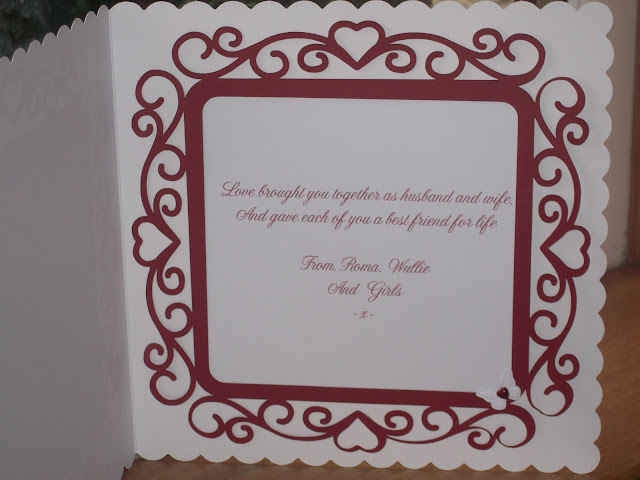 Love brought you together as husband and wife,
And gave each of you a best friend for life
From, Roma, Wullie
And Girls
-x-